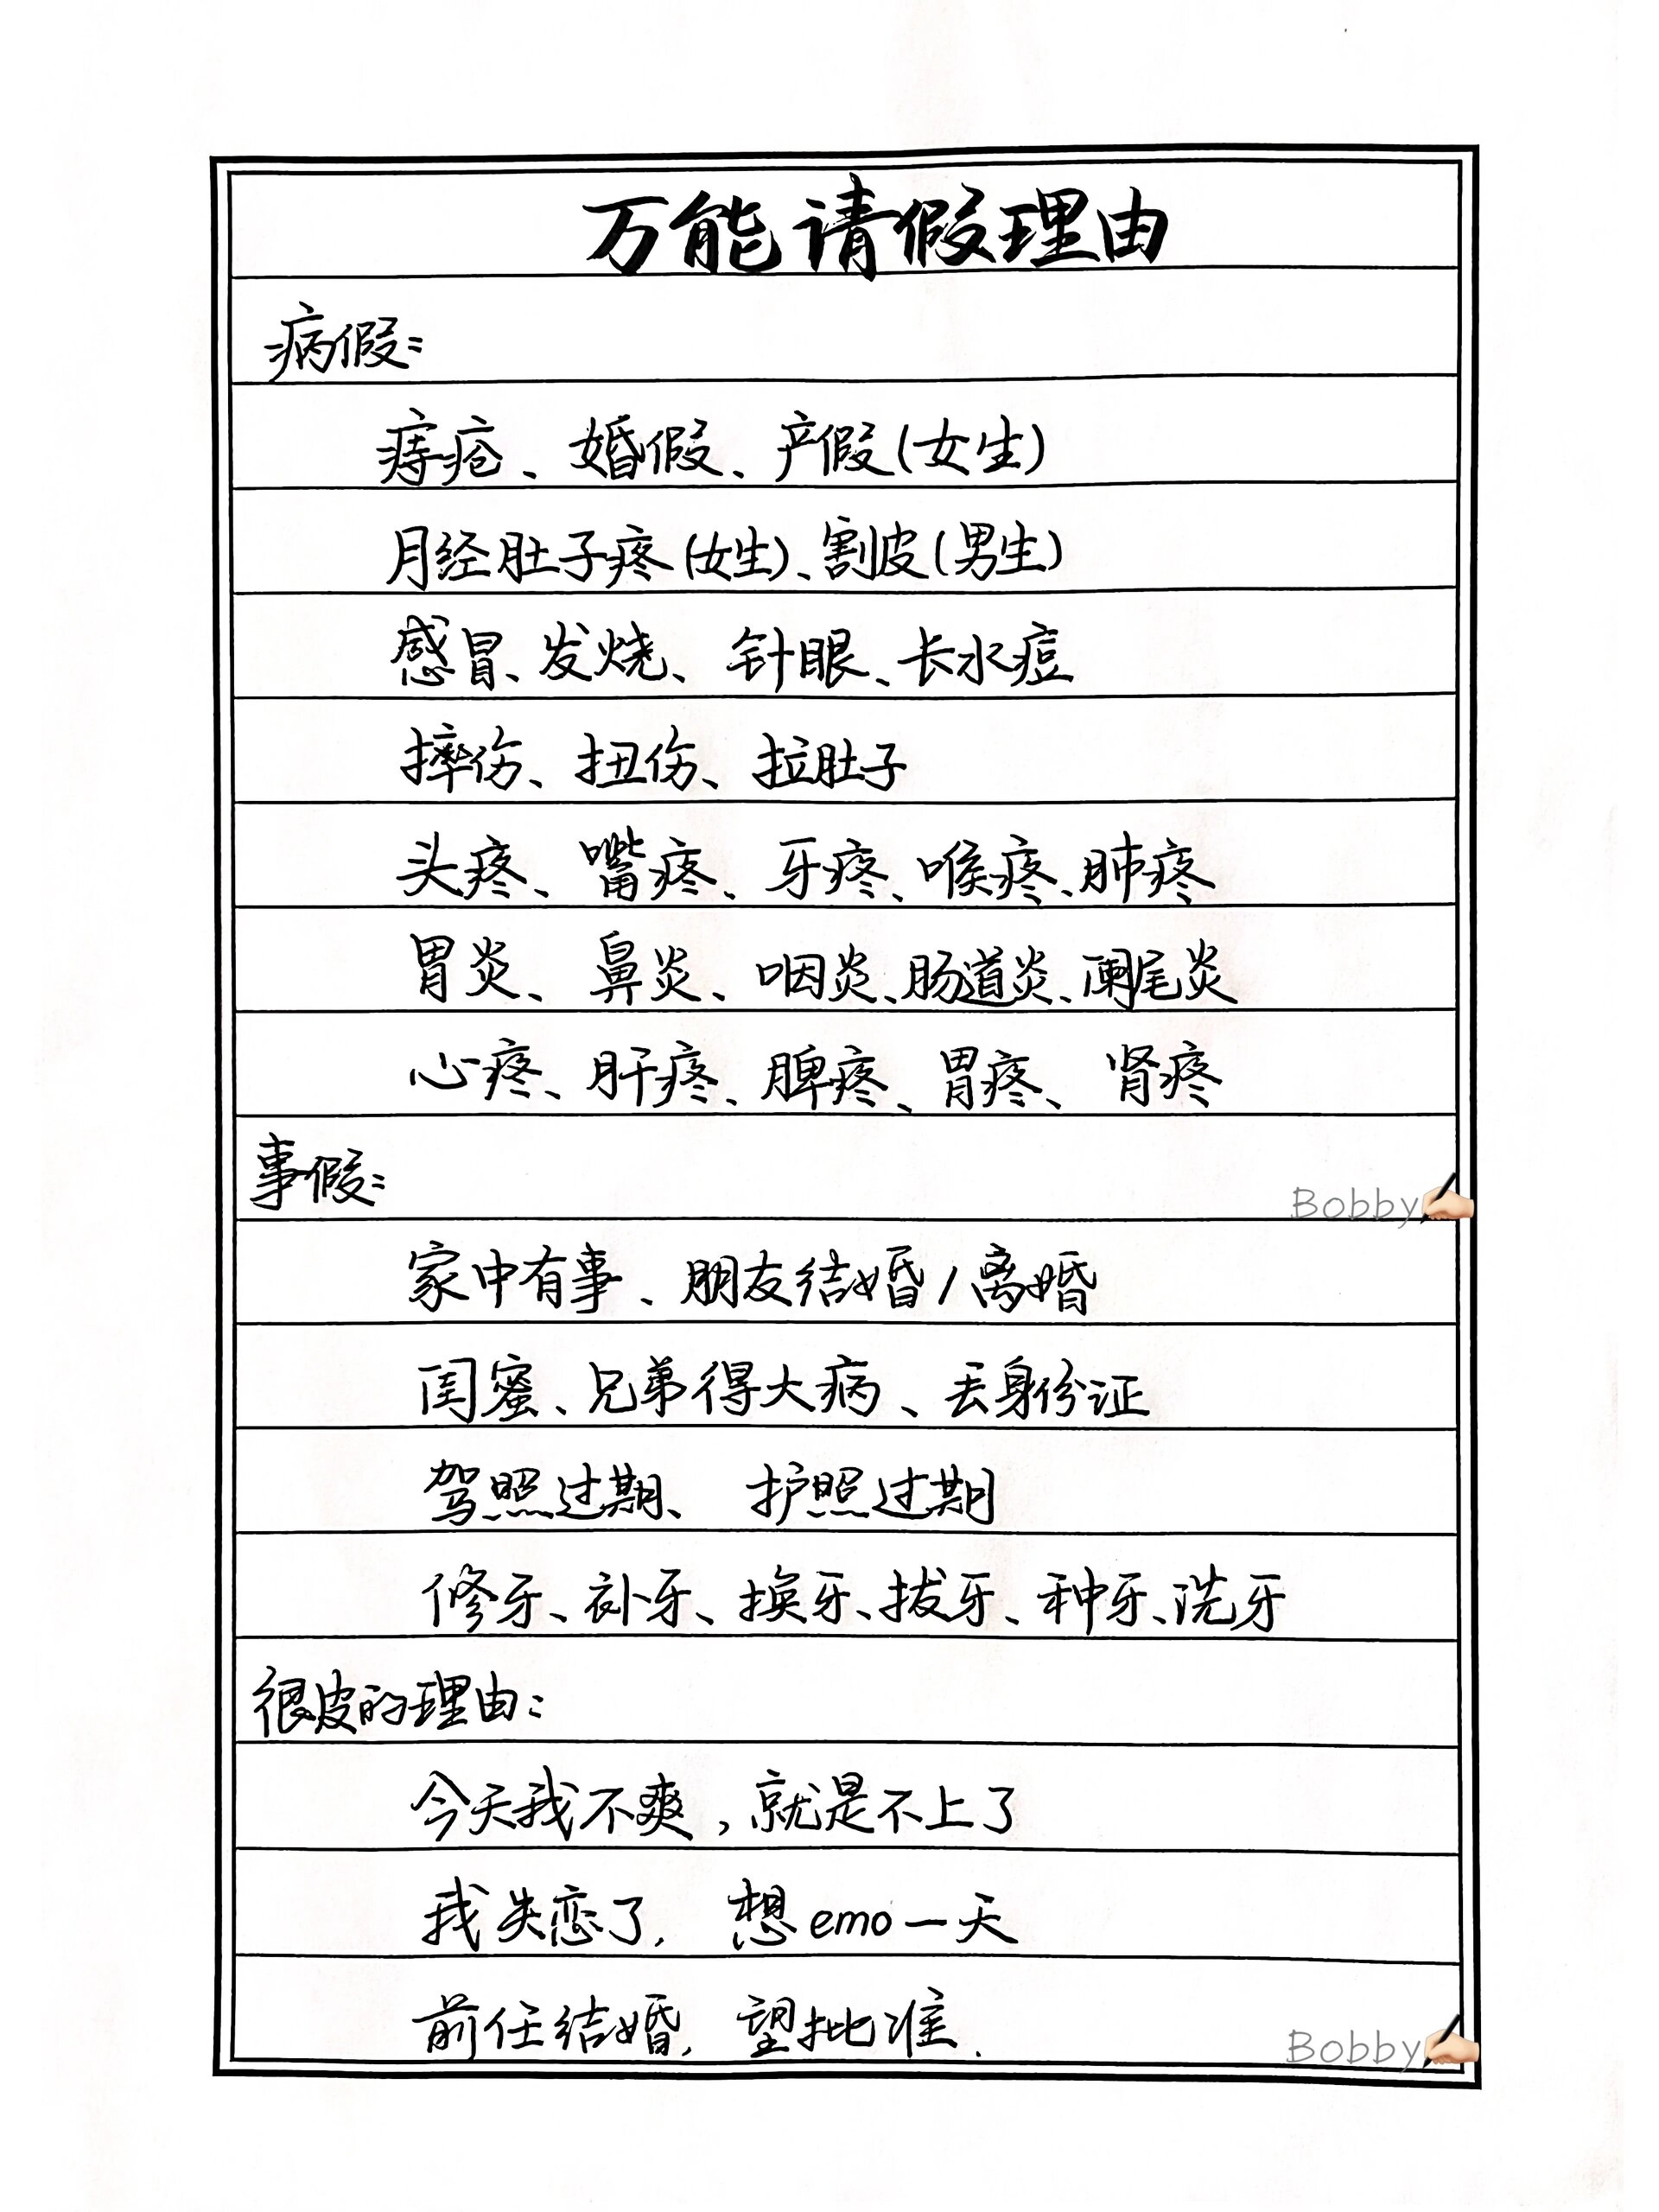 万能请假理由
病假:
痔疮、婚假、产假(女生)
月经肚子疼(女生)、割皮(男生)
感冒、发烧、针眼、长水痘
摔伤、扭伤、拉肚子
头疼、嘴疼、牙疼、喉疼、肺疼
胃炎、鼻炎、咽炎、肠道炎、阑尾炎
心疼、肝疼、脾疼、胃疼、肾疼
事假:
Bobby
家中有事、朋友结婚/离婚
闺蜜、兄弟得大病、丢身份证
驾照过期、护照过期
修牙、补牙、换牙、拔牙、种牙、洗牙
很皮的理由:
今天我不爽,就是不上了
我失恋了, 想emo一天
前任结婚, 望批准.
Bobby